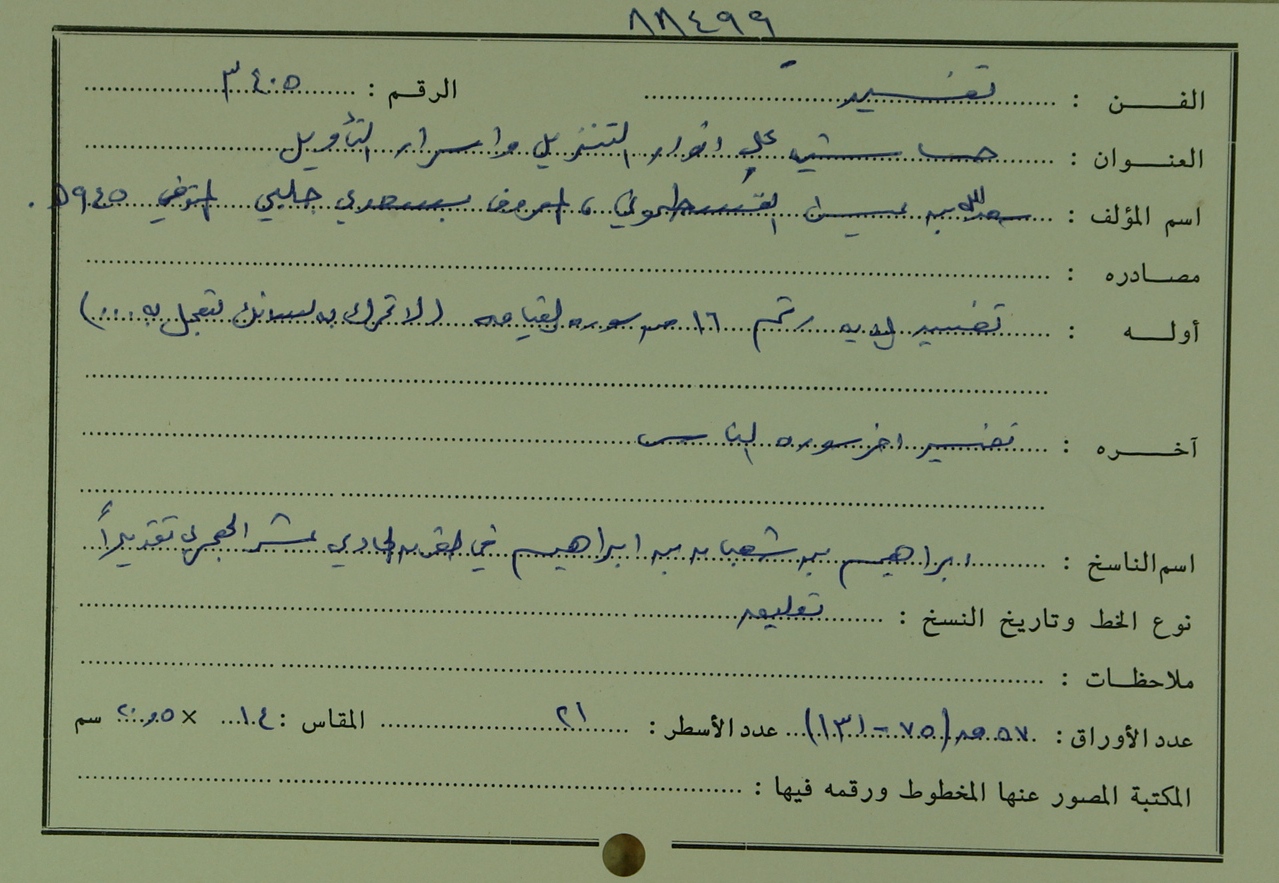 ٨٨٤٩٩
الفن : تفسير الرقم : ٣٤٠٥
العنوان : حاشيه على انوار التنزيل واسرار التأويل
اسم المؤلف : سعدالله بن عيسى القسطموني، المعروف بسعدي جلبي المتوفي ٩٤٥هـ.
مصادره :
أوله : تفسير الايه رقم ١٦ من سوره القيامه (لا تحرك به لسانك لتعجل به ...)
آخره : تفسير اخر سوره الناس
اسم الناسخ : ابراهيم بن شعبان بن ابراهيم في القرن الحادي عشر الهجري تقديراً
نوع الخط وتاريخ النسخ : تعليق
ملاحظات :
عدد الأوراق : ٥٧ ق (٧٥ - ١٣١) عدد الأسطر : ٢١ المقاس : ١٤ × ٢٠,٥ سم
المكتبة المصور عنها المخطوط ورقمه فيها :